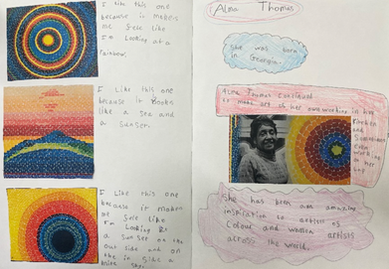 I like this one
because it makes
me feel like
I'm Looking at a
Rainbow.
I like this one
because it Looks
like a sea and
a sunset.
I like this one
because it makes
me feel like
I'm Looking at
a sunset on the
out side and on
the in side a
Alma Thomas
She was born
in Georgia.
Alma Thomas continued
to make art of her own working in her
Kitchen
and
Sometimes
even
working
on her
She has been an amazing
inspiration to artists of
Colour and women artists
across the world.